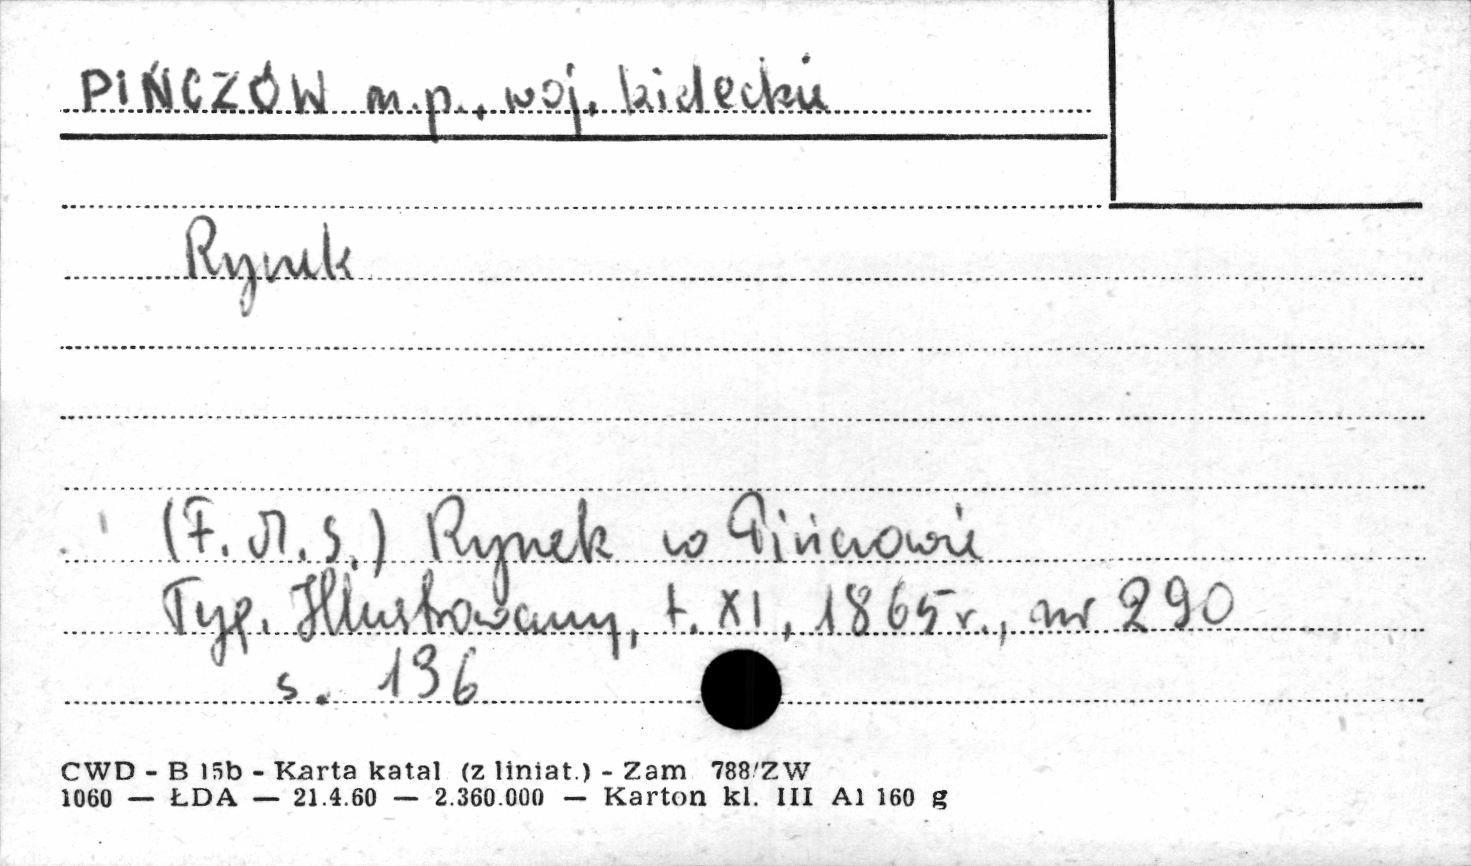 PIŃCZÓW m.p., woj. kieleckie
Rynek
(F. M. S.) Rynek w Pińczowie
Tyg. Illustrowany, t. XI, 1865 r., nr 290
s. 136
CWD - B 15b - Karta katal (z liniat.) - Zam 788/ZW
1060 — ŁDA — 21.4.60 — 2.360.000 — Karton kl. III A1 160 g